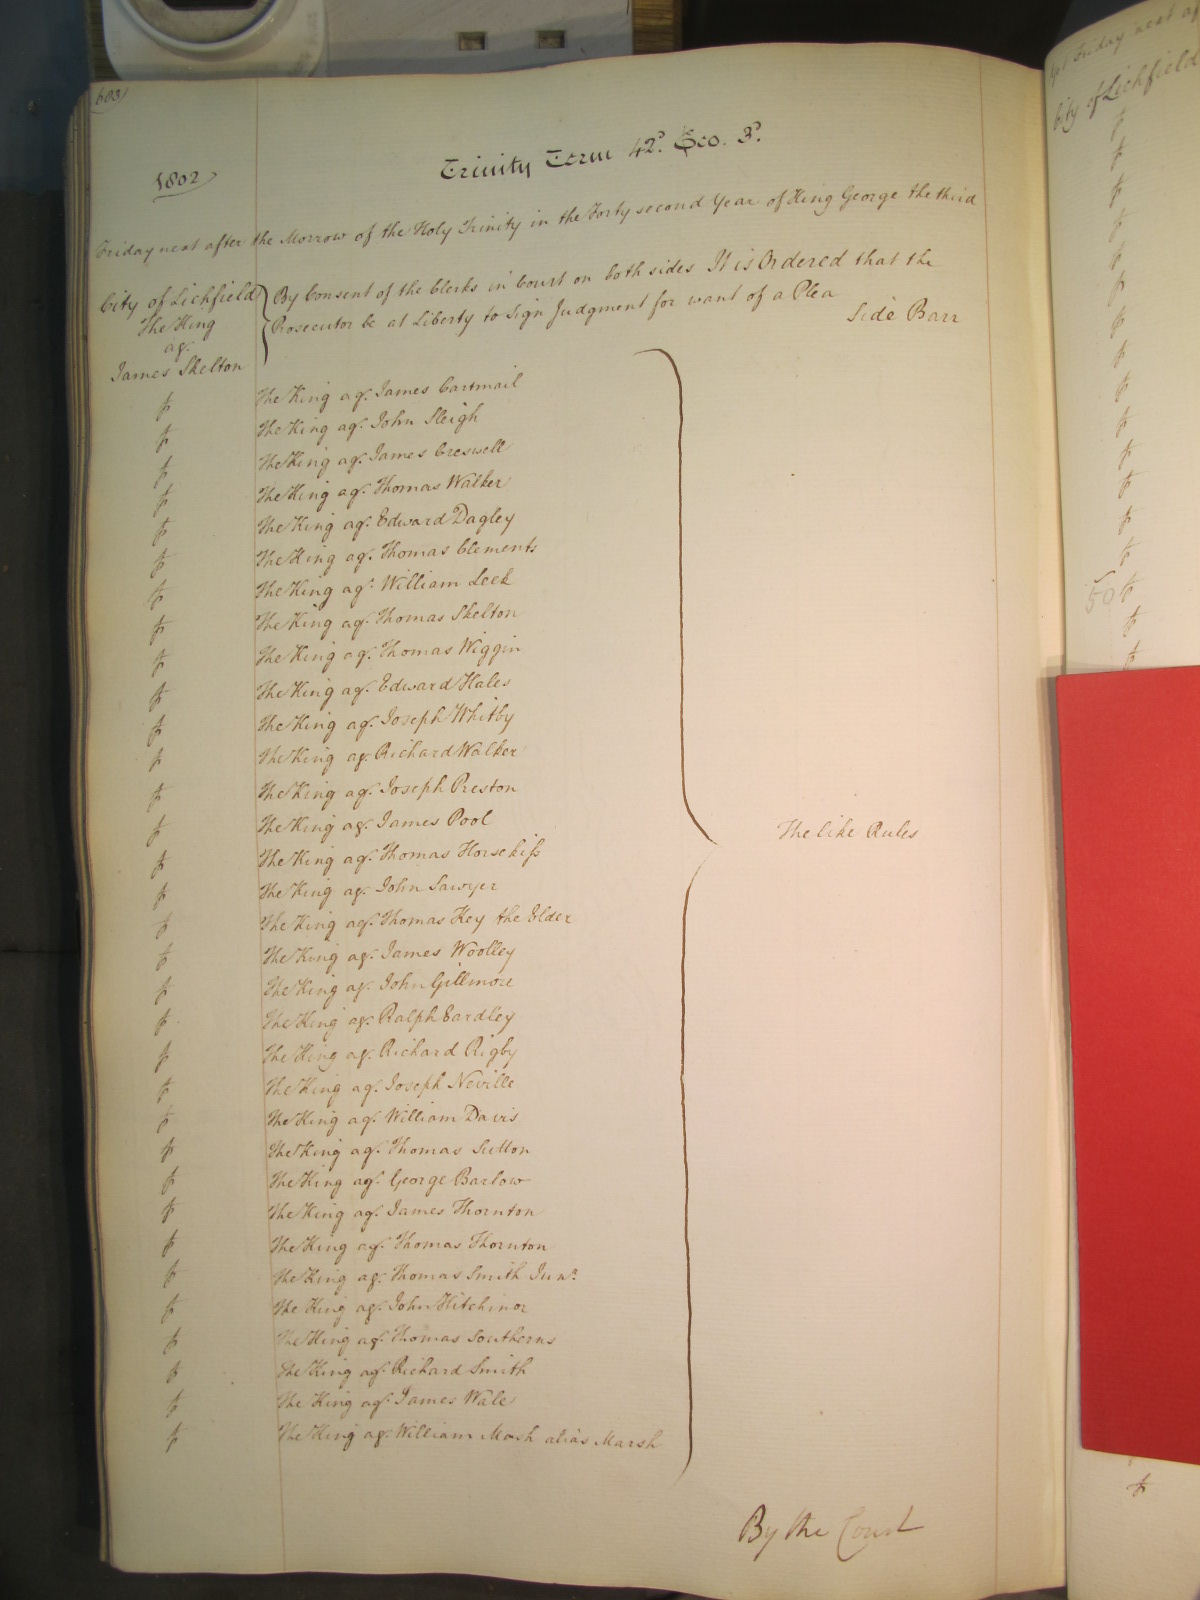 603
Trinity Term 42d. Geo. 3d.
1802
Friday next after the Morrow of the Holy Trinity in the Forty second Year of King George the third
City of Lichfield
The King
agt.
James Skelton
By Consent of the Clerks in Court on both sides It is Ordered that the
Prosecutor be at Liberty to Sign Judgment for want of a Plea
Side Barr
The King agt. James Cartmail
The King agt. John Sleigh
The King agt. James Creswell
The King agt. Thomas Walker
The King agt. Edward Dagley
The King agt. Thomas Clements
The King agt. William Leek
The King agt. Thomas Skelton
The King agt. Thomas Wiggin
The King agt. Edward Hales
The King agt. Joseph Whitby
The King agt. Richard Walker
The King agt. Joseph Preston
The King agt. James Pool
The like Rules
The King agt. Thomas Horsekiss
The King agt. John Sawyer
The King agt. Thomas Key the Elder
The King agt. James Woolley
The King agt. John Gillmore
The King agt. Ralph Eardley
The King agt. Richard Rigby
The King agt. Joseph Neville
The King agt. William Davis
The King agt. Thomas Sutton
The King agt. George Barlow
The King agt. James Thornton
The King agt. Thomas Thornton
The King agt. Thomas Smith Junr.
The King agt. John Hitchinor
The King agt. Thomas Southerns
The King agt. Richard Smith
The King agt. James Wale
The King agt. William Mash alias Marsh
By the Court
Friday next
City of Lichfield
50